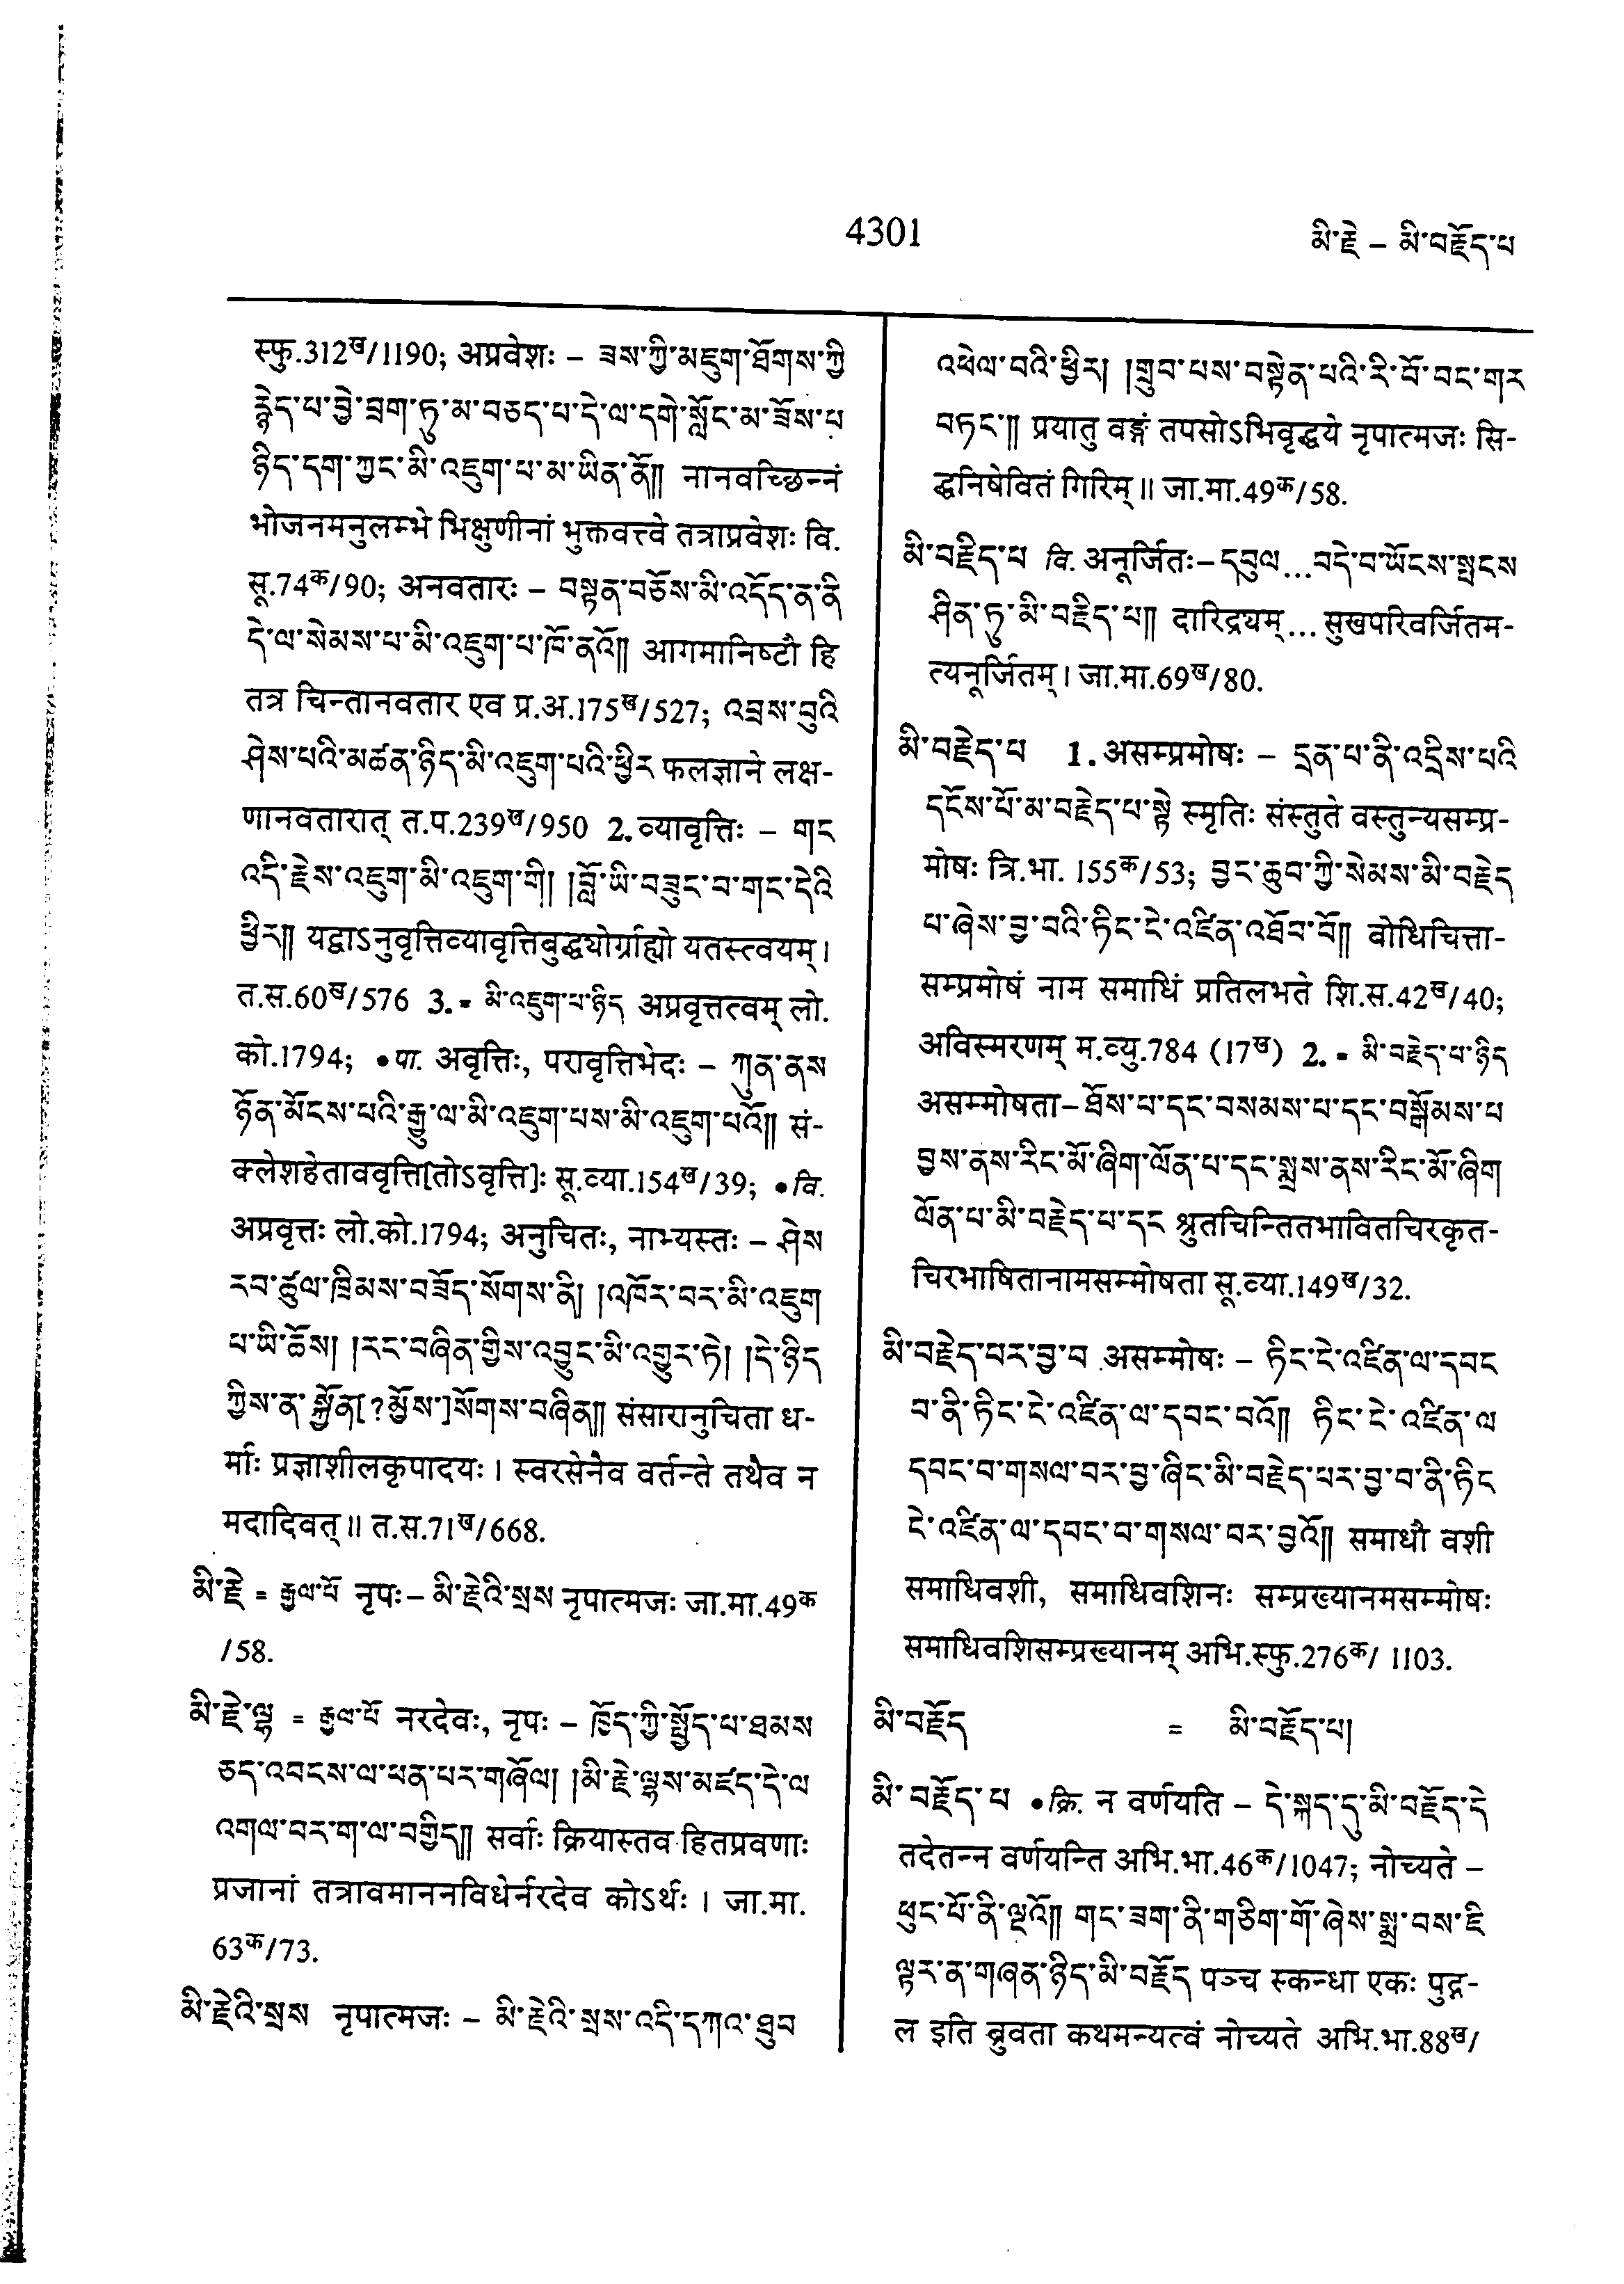 4301
མི་རྗེ – མི་བརྗོད་པ
स्फु.312ख/1190; अप्रवेशः – ཟས་ཀྱི་མཇུག་ཐོགས་ཀྱི
རྙེད་པ་བྱེ་བྲག་ཏུ་མ་བཅད་པ་དེ་ལ་དགེ་སློང་མ་ཟོས་པ
ཉིད་དག་ཀྱང་མི་འཇུག་པ་མ་ཡིན་ནོ༎ नानवच्छिन्नं
भोजनमनुलम्भे भिक्षुणीनां भुक्तवत्त्वे तत्राप्रवेशः वि.
सू.74क/90; अनवतारः – བསྟན་བཅོས་མི་འདོད་ན་ནི
དེ་ལ་སེམས་པ་མི་འཇུག་པ་ཁོ་ནའོ༎ आगमानिष्टौ हि
तत्र चिन्तानवतार एव प्र.अ.175ख/527; འབྲས་བུའི
ཤེས་པའི་མཚན་ཉིད་མི་འཇུག་པའི་ཕྱིར फलज्ञाने लक्ष-
णानवतारात् त.प.239ख/950 2.व्यावृत्तिः – གང
འདི་རྗེས་འཇུག་མི་འཇུག་གི། །བློ་ཡི་བཟུང་བ་གང་དེའི
ཕྱིར༎ यद्वाऽनुवृत्तिव्यावृत्तिबुद्धयोर्ग्राह्यो यतस्त्वयम् ।
त.स.60ख/576 3.= མི་འཇུག་པ་ཉིད अप्रवृत्तत्वम् लो.
को.1794; •पा. अवृत्तिः, परावृत्तिभेदः – ཀུན་ནས
ཉོན་མོངས་པའི་རྒྱུ་ལ་མི་འཇུག་པས་མི་འཇུག་པའོ༎ सं-
क्लेशहेताववृत्ति[तोऽवृत्ति]ः सू.व्या.154ख/39; •वि.
अप्रवृत्तः लो.को.1794; अनुचितः, नाभ्यस्तः – ཤེས
རབ་ཚུལ་ཁྲིམས་བཟོད་སོགས་ནི། །འཁོར་བར་མི་འཇུག
པ་ཡི་ཆོས། །རང་བཞིན་གྱིས་འབྱུང་མི་འགྱུར་ཏེ། །དེ་ཉིད
ཀྱིས་ན་སྐྱོན[?མྱོས་]སོགས་བཞིན༎ संसारानुचिता ध-
र्माः प्रज्ञाशीलकृपादयः । स्वरसेनैव वर्तन्ते तथैव न
मदादिवत् ॥ त.स.71ख/668.
མི་རྗེ = རྒྱལ་པོ नृपः – མི་རྗེའི་སྲས नृपात्मजः जा.मा.49क
/58.
མི་རྗེ་ལྷ = རྒྱལ་པོ नरदेवः, नृपः – ཁྱོད་ཀྱི་སྤྱོད་པ་ཐམས
ཅད་འབངས་ལ་ཕན་པར་གཞོལ། །མི་རྗེ་ལྷས་མཛད་དེ་ལ
འགལ་བར་ག་ལ་བགྱིད༎ सर्वाः क्रियास्तव हितप्रवणाः
प्रजानां तत्रावमाननविधेर्नरदेव कोऽर्थः । जा.मा.
63क/73.
མི་རྗེའི་སྲས नृपात्मजः – མི་རྗེའི་སྲས་འདི་དཀའ་ཐུབ
འཕེལ་བའི་ཕྱིར། །གྲུབ་པས་བསྟེན་པའི་རི་བོ་བང་གར
བཏང་༎ प्रयातु वङ्गं तपसोऽभिवृद्धये नृपात्मजः सि-
द्धनिषेवितं गिरिम् ॥ जा.मा.49क/58.
མི་བརྗིད་པ वि. अनूर्जितः – དབུལ...བདེ་བ་ཡོངས་སྤངས
ཤིན་ཏུ་མི་བརྗིད་པ༎ दारिद्र्यम्...सुखपरिवर्जितम-
त्यनूर्जितम् । जा.मा.69ख/80.
མི་བརྗེད་པ 1.असम्प्रमोषः – དྲན་པ་ནི་འདྲིས་པའི
དངོས་པོ་མ་བརྗེད་པ་སྟེ स्मृतिः संस्तुते वस्तुन्यसम्प्र-
मोषः त्रि.भा. 155क/53; བྱང་ཆུབ་ཀྱི་སེམས་མི་བརྗེད
པ་ཞེས་བྱ་བའི་ཏིང་ངེ་འཛིན་འཐོབ་བོ༎ बोधिचित्ता-
सम्प्रमोषं नाम समाधिं प्रतिलभते शि.स.42ख/40;
अविस्मरणम् म.व्यु.784 (17ख) 2.= མི་བརྗེད་པ་ཉིད
असम्मोषता – ཐོས་པ་དང་བསམས་པ་དང་བསྒོམས་པ
བྱས་ནས་རིང་མོ་ཞིག་ལོན་པ་དང་སྨྲས་ནས་རིང་མོ་ཞིག
ལོན་པ་མི་བརྗེད་པ་དང श्रुतचिन्तितभावितचिरकृत-
चिरभाषितानामसम्मोषता सू.व्या.149ख/32.
མི་བརྗེད་པར་བྱ་བ असम्मोषः – ཏིང་ངེ་འཛིན་ལ་དབང
བ་ནི་ཏིང་ངེ་འཛིན་ལ་དབང་བའོ༎ ཏིང་ངེ་འཛིན་ལ
དབང་བ་གསལ་བར་བྱ་ཞིང་མི་བརྗེད་པར་བྱ་བ་ནི་ཏིང
ངེ་འཛིན་ལ་དབང་བ་གསལ་བར་བྱའོ༎ समाधौ वशी
समाधिवशी, समाधिवशिनः सम्प्रख्यानमसम्मोषः
समाधिवशिसम्प्रख्यानम् अभि.स्फु.276क/ 1103.
མི་བརྗོད = མི་བརྗོད་པ།
མི་བརྗོད་པ •क्रि. न वर्णयति – དེ་སྐད་དུ་མི་བརྗོད་དེ
तदेतन्न वर्णयन्ति अभि.भा.46क/1047; नोच्यते –
ཕུང་པོ་ནི་ལྔའོ༎ གང་ཟག་ནི་གཅིག་གོ་ཞེས་སྨྲ་བས་ཇི
ལྟར་ན་གཞན་ཉིད་མི་བརྗོད पञ्च स्कन्धा एकः पुद्ग-
ल इति ब्रुवता कथमन्यत्वं नोच्यते अभि.भा.88ख/